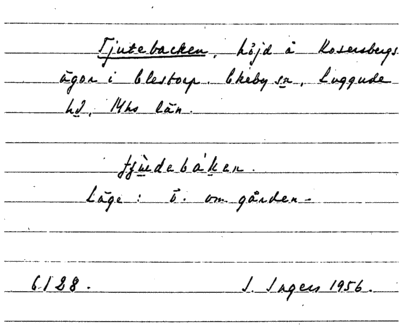 Tjutebacken, höjd å Rosersbergs
ägor i Elestorp. Ekeby sn, Luggude
hd, Mhs län.
tjùdebákan.
Läge: ö. om gården –
6128. I. Ingers 1956.